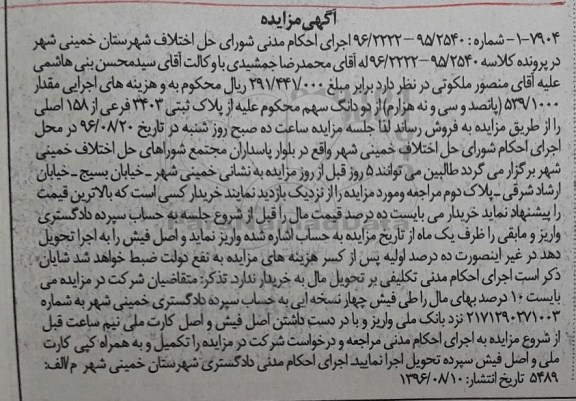 آگهی مزایده
۷۹۰۴-۱- شماره: ۹۵/۲۵۴۰-۹۶/۲۲۲۲ اجرای احکام مدنی شورای حل اختلاف شهرستان خمینی شهر
در پرونده کلاسه ۹۵/۲۵۴۰-۹۶/۲۲۲۲ له آقای محمدرضا جمشیدی با وکالت آقای سیدمحسن بنی هاشمی
علیه آقای منصور ملکوتی در نظر دارد برابر مبلغ ۲۹۱/۴۴۱/۰۰۰ ریال محکوم به و هزینه های اجرایی مقدار
۵۳۹/۱۰۰۰ (پانصد و سی و نه هزارم) از دو دانگ سهم محکوم علیه از پلاک ثبتی ۳۴۰۳ فرعی از ۱۵۸ اصلی
را از طریق مزایده به فروش رساند لذا جلسه مزایده ساعت ده صبح روز شنبه در تاریخ ۹۶/۰۸/۲۰ در محل
اجرای احکام شورای حل اختلاف خمینی شهر واقع در بلوار پاسداران مجتمع شوراهای حل اختلاف خمینی
شهر برگزار می گردد طالبین می توانند ۵ روز قبل از روز مزایده به نشانی خمینی شهر - خیابان بسیج - خیابان
ارشاد شرقی - پلاک دوم مراجعه و مورد مزایده را از نزدیک بازدید نمایند خریدار کسی است که بالاترین قیمت
را پیشنهاد نماید خریدار می بایست ده درصد قیمت مال را قبل از شروع جلسه به حساب سپرده دادگستری
واریز و مابقی را ظرف یک ماه از تاریخ مزایده به حساب اشاره شده واریز نماید و اصل فیش را به اجرا تحویل
دهد در غیر اینصورت ده درصد اولیه پس از کسر هزینه های مزایده به نفع دولت ضبط خواهد شد شایان
ذکر است اجرای احکام مدنی تکلیفی بر تحویل مال به خریدار ندارد. تذکر: متقاضیان شرکت در مزایده می
بایست ۱۰ درصد بهای مال را طی فیش چهار نسخه ایی به حساب سپرده دادگستری خمینی شهر به شماره
۲۱۷۱۲۹۰۲۷۱۰۰۳ نزد بانک ملی واریز و با در دست داشتن اصل فیش و اصل کارت ملی نیم ساعت قبل
از شروع مزایده به اجرای احکام مدنی مراجعه و درخواست شرکت در مزایده را تکمیل و به همراه کپی کارت
ملی و اصل فیش سپرده تحویل اجرا نمایید. اجرای احکام مدنی دادگستری شهرستان خمینی شهر م/الف:
۵۴۸۹ تاریخ انتشار: ۱۳۹۶/۰۸/۱۰